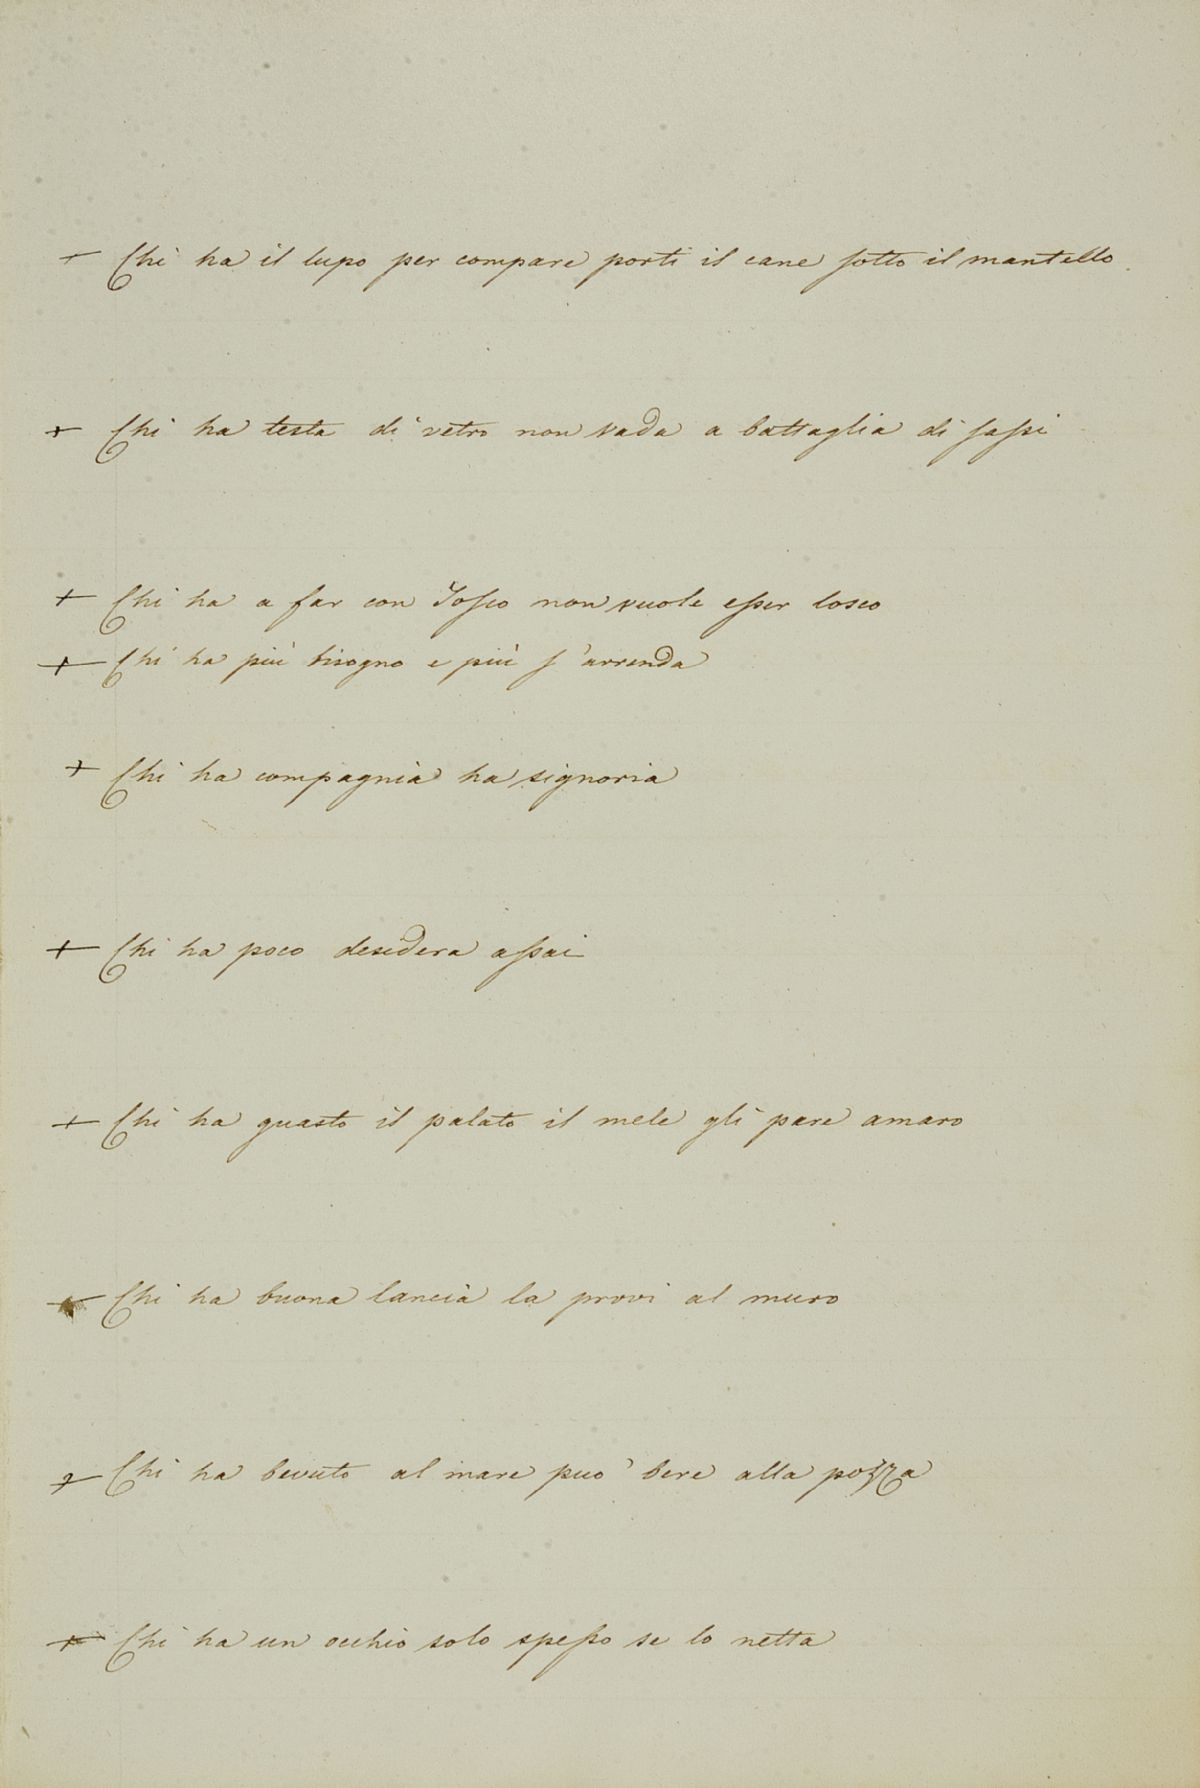 + Chi ha il lupo per compare porti il cane sotto il mantello
+ Chi ha testa di vetro non vada a battaglia di sassi
+ Chi ha a far con Tosco non vuole esser losco
+ Chi ha più bisogno e più s'arrenda
+ Chi ha compagnia ha signoria
+ Chi ha poco desidera assai
+ Chi ha guasto il palato il mele gli pare amaro
+ Chi ha buona lancia la provi al muro
+ Chi ha bevuto al mare può bere alla pozza
+ Chi ha un occhio solo spesso se lo netta